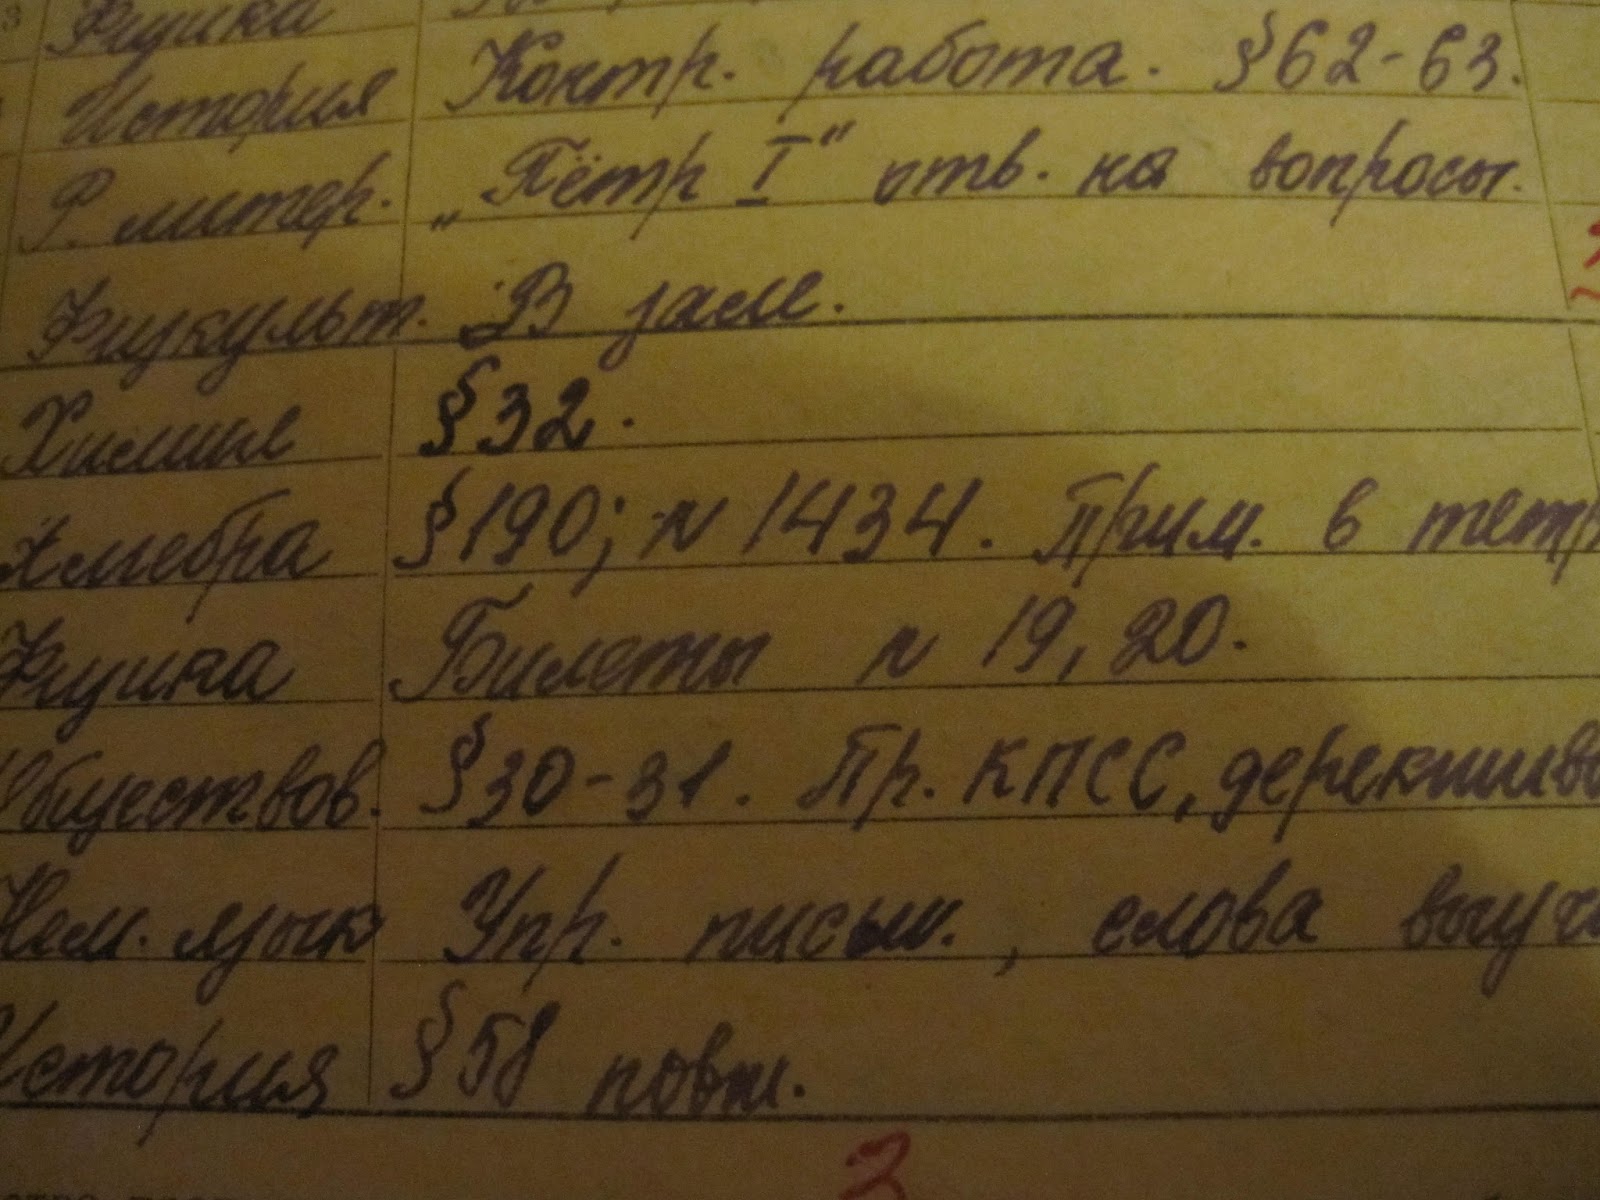 Физика
История Контр. работа. §62-63.
Р. литер. „Пётр I" отв. на вопросы.
Физкульт. В зале.
Химия §32.
Алгебра §190; N 1434. Прим. в тетр
Физика Билеты N 19, 20.
Обществов. §30-31. Пр. КПСС, дерективы
Нем. язык Упр. письм., слова выучи
История §58 повт.
3